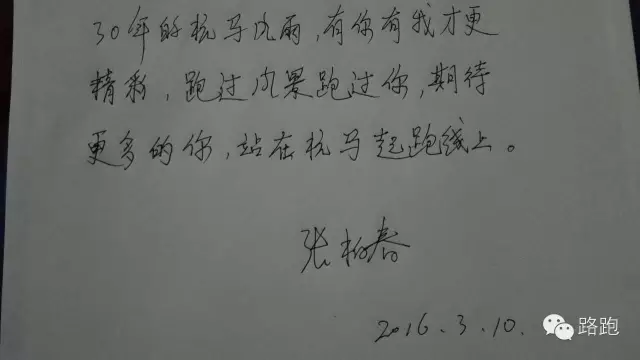 30年的杭马风雨,有你有我才更
精彩,跑过风景跑过你,期待
更多的你,站在杭马起跑线上。
张柏春
2016.3.10.
路跑